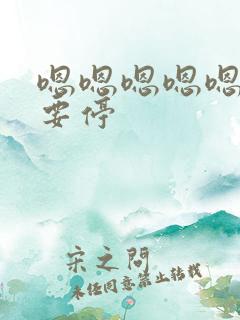 嗯嗯嗯嗯嗯
要停
宋之问
未经同意禁止转载